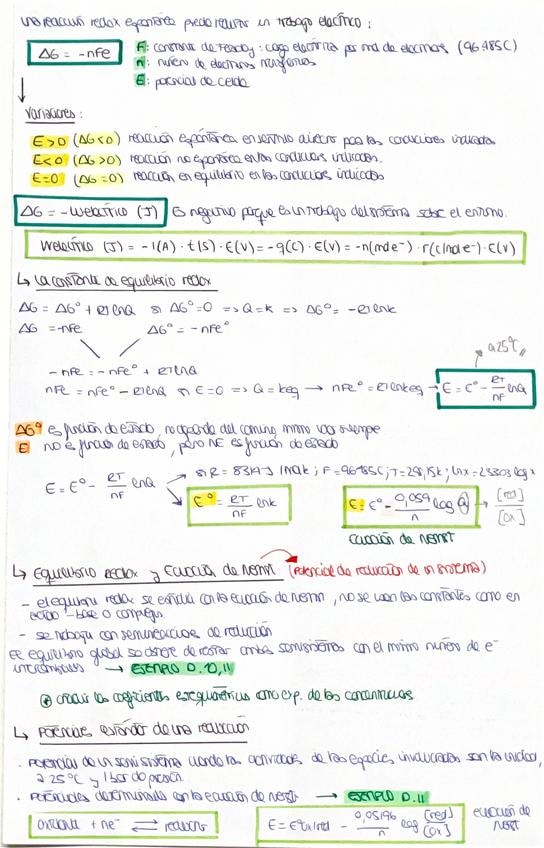 una reacción redox espontánea puede realizar un trabajo eléctrico:
ΔG = -nFE
F: constante de Faraday: carga eléctrica por mol de electrones (96485C)
n: número de electrones transferidos
E: potencial de celda
Variaciones:
E>0 (ΔG<0) reacción espontánea en sentido directo para las condiciones indicadas
E<0 (ΔG>0) reacción no espontánea en las condiciones indicadas.
E=0 (ΔG=0) reacción en equilibrio en las condiciones indicadas
ΔG = -Weléctrico (J) Es negativo porque es un trabajo del sistema sobre el entorno.
Weléctrico (J) = -I(A) · t(s) · E(V) = -q(C) · E(V) = -n(mol e⁻) · F(C/mol e⁻) · E(V)
↳ La constante de equilibrio redox
ΔG = ΔG° + RTlnQ si ΔG°=0 => Q=K => ΔG° = -RTlnK
ΔG = -nFE ΔG° = -nFE°
a 25℃
-nFE = -nFE° + RTlnQ
nFE = nFE° - RTlnQ si E=0 => Q=Keq → nFE° = RTlnKeq → E = E° - RT/nF lnQ
ΔG° es función de estado, no depende del camino, mismo valor siempre
E no es función de estado, pero nE es función de estado
E = E° - RT/nF lnQ → si R = 8,314 J/molK; F=96485C; T=298,15K; lnx=2,3303 logx
E° = RT/nF lnK E = E° - 0,059/n log Q → [red]/[ox]
ecuación de Nernst
↳ Equilibrio redox y Ecuación de Nernst (Potencial de reducción de un sistema)
- el equilibrio redox se estudia con la ecuación de Nernst, no se usan las constantes como en ácido-base o complejos
- se trabaja con semirreacciones de reducción
El equilibrio global se obtiene de restar ambas semisistemas con el mismo número de e⁻
intercambiados → EJEMPLO D.10,11
los coeficientes estequiométricos como exp. de las concentraciones
↳ Potenciales estándar de una reducción
· Potencial de un semisistema cuando las actividades de las especies involucradas son la unidad,
a 25℃ y 1 bar de presión.
· Potenciales determinados con la ecuación de Nernst → EJEMPLO D.11
oxidante + ne⁻ ⇌ reductor E = E°ox/red - 0,05916/n log [red]/[ox] ecuación de
Nernst